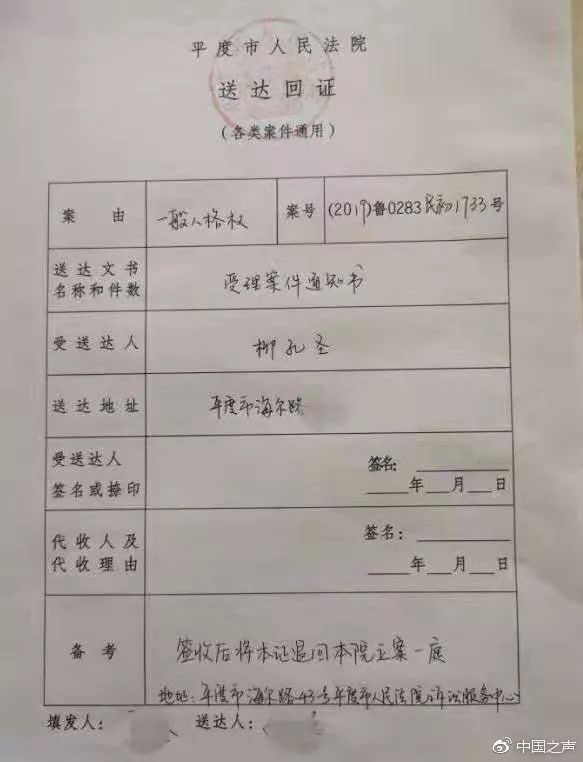 平度市人民法院
送达回证
(各类案件通用)
案由 一般人格权 案号 (2019)鲁0283民初1733号
送达文书
名称和件数 受理案件通知书
受送达人 柳孔圣
送达地址 平度市海尔路
受送达人
签名或捺印 签名:
年 月 日
代收人及
代收理由 签名:
年 月 日
备考 签收后将本证退回本院立案一庭
地址:平度市海尔路43号平度市人民法院(诉讼服务中心)
填发人: 送达人:
中国之声